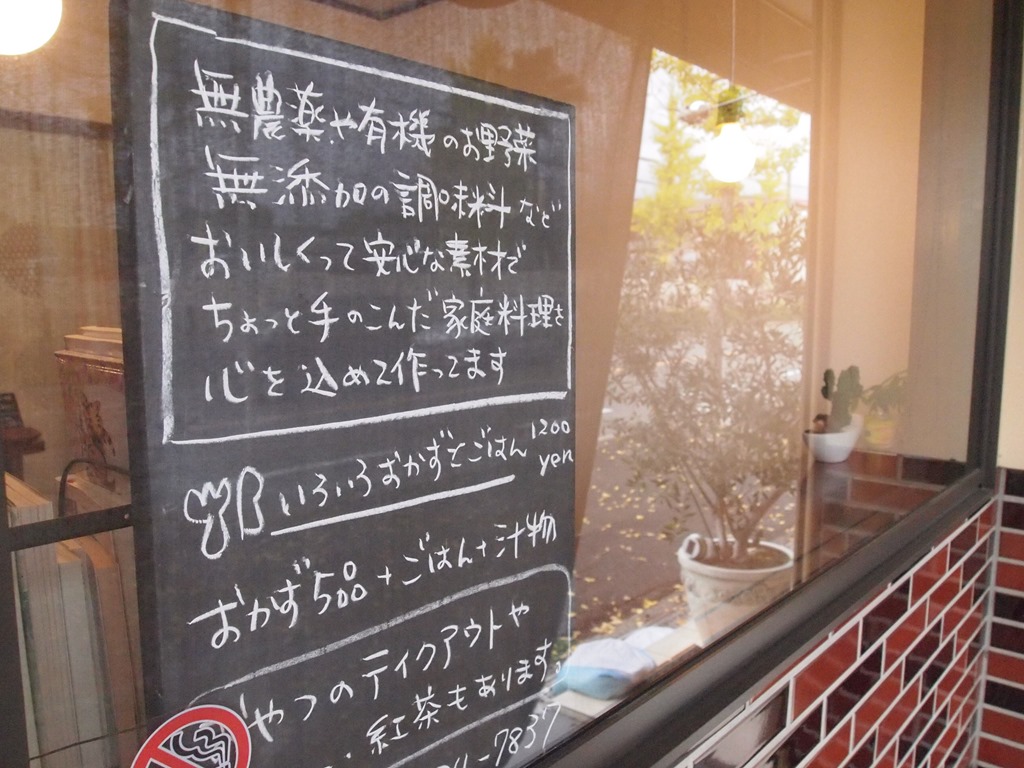 無農薬や有機のお野菜
無添加の調味料など
おいしくって安心な素材で
ちょっと手のこんだ家庭料理を
心を込めて作ってます
いろいろおかずとごはん 1200 yen
おかず5品+ごはん+汁物
やつのテイクアウトや
紅茶もあります。
-7837